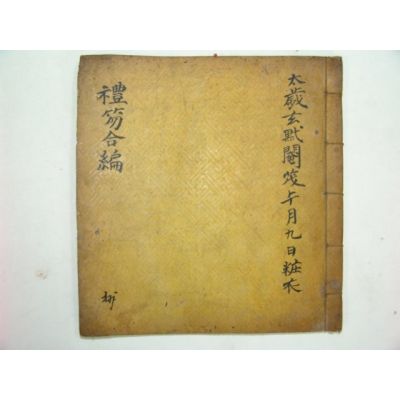 太歲玄黓閹茂午月九日粧衣
禮笏合編